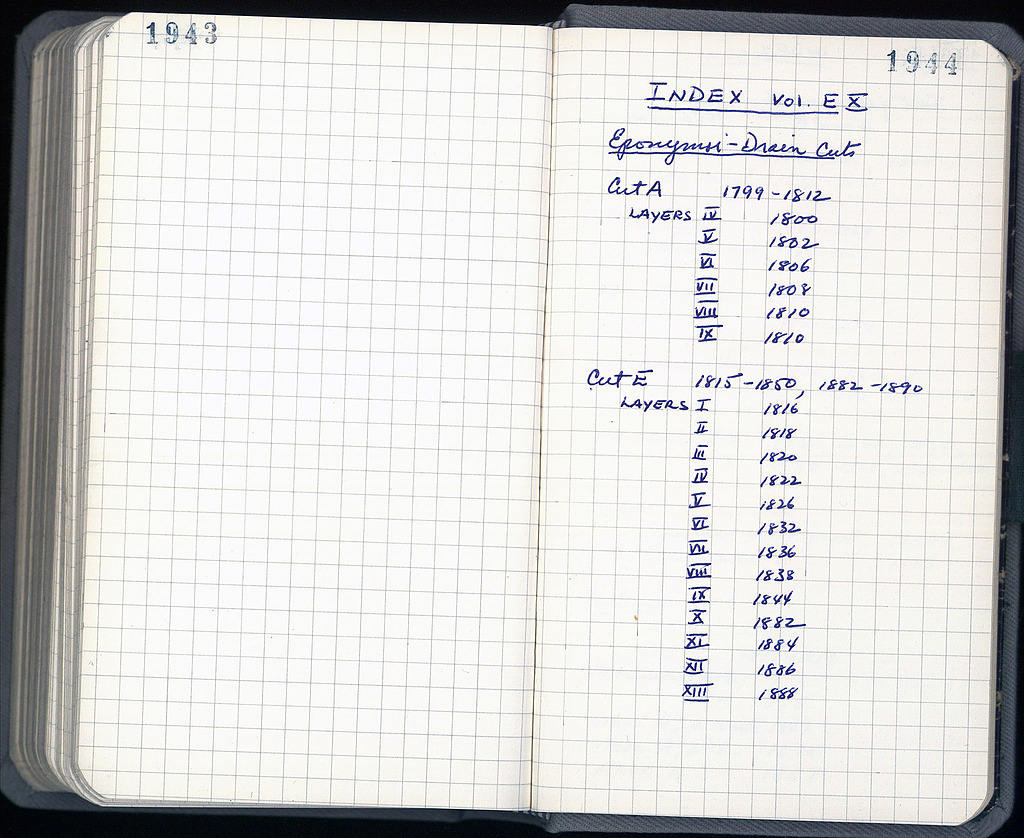 1943
1944
INDEX Vol. E X
Eponymoi-Drain Cuts
Cut A 1799-1812
LAYERS IV 1800
V 1802
VI 1806
VII 1808
VIII 1810
IX 1810
Cut E 1815-1850, 1882-1890
LAYERS I 1816
II 1818
III 1820
IV 1822
V 1826
VI 1832
VII 1836
VIII 1838
IX 1844
X 1882
XI 1884
XII 1886
XIII 1888